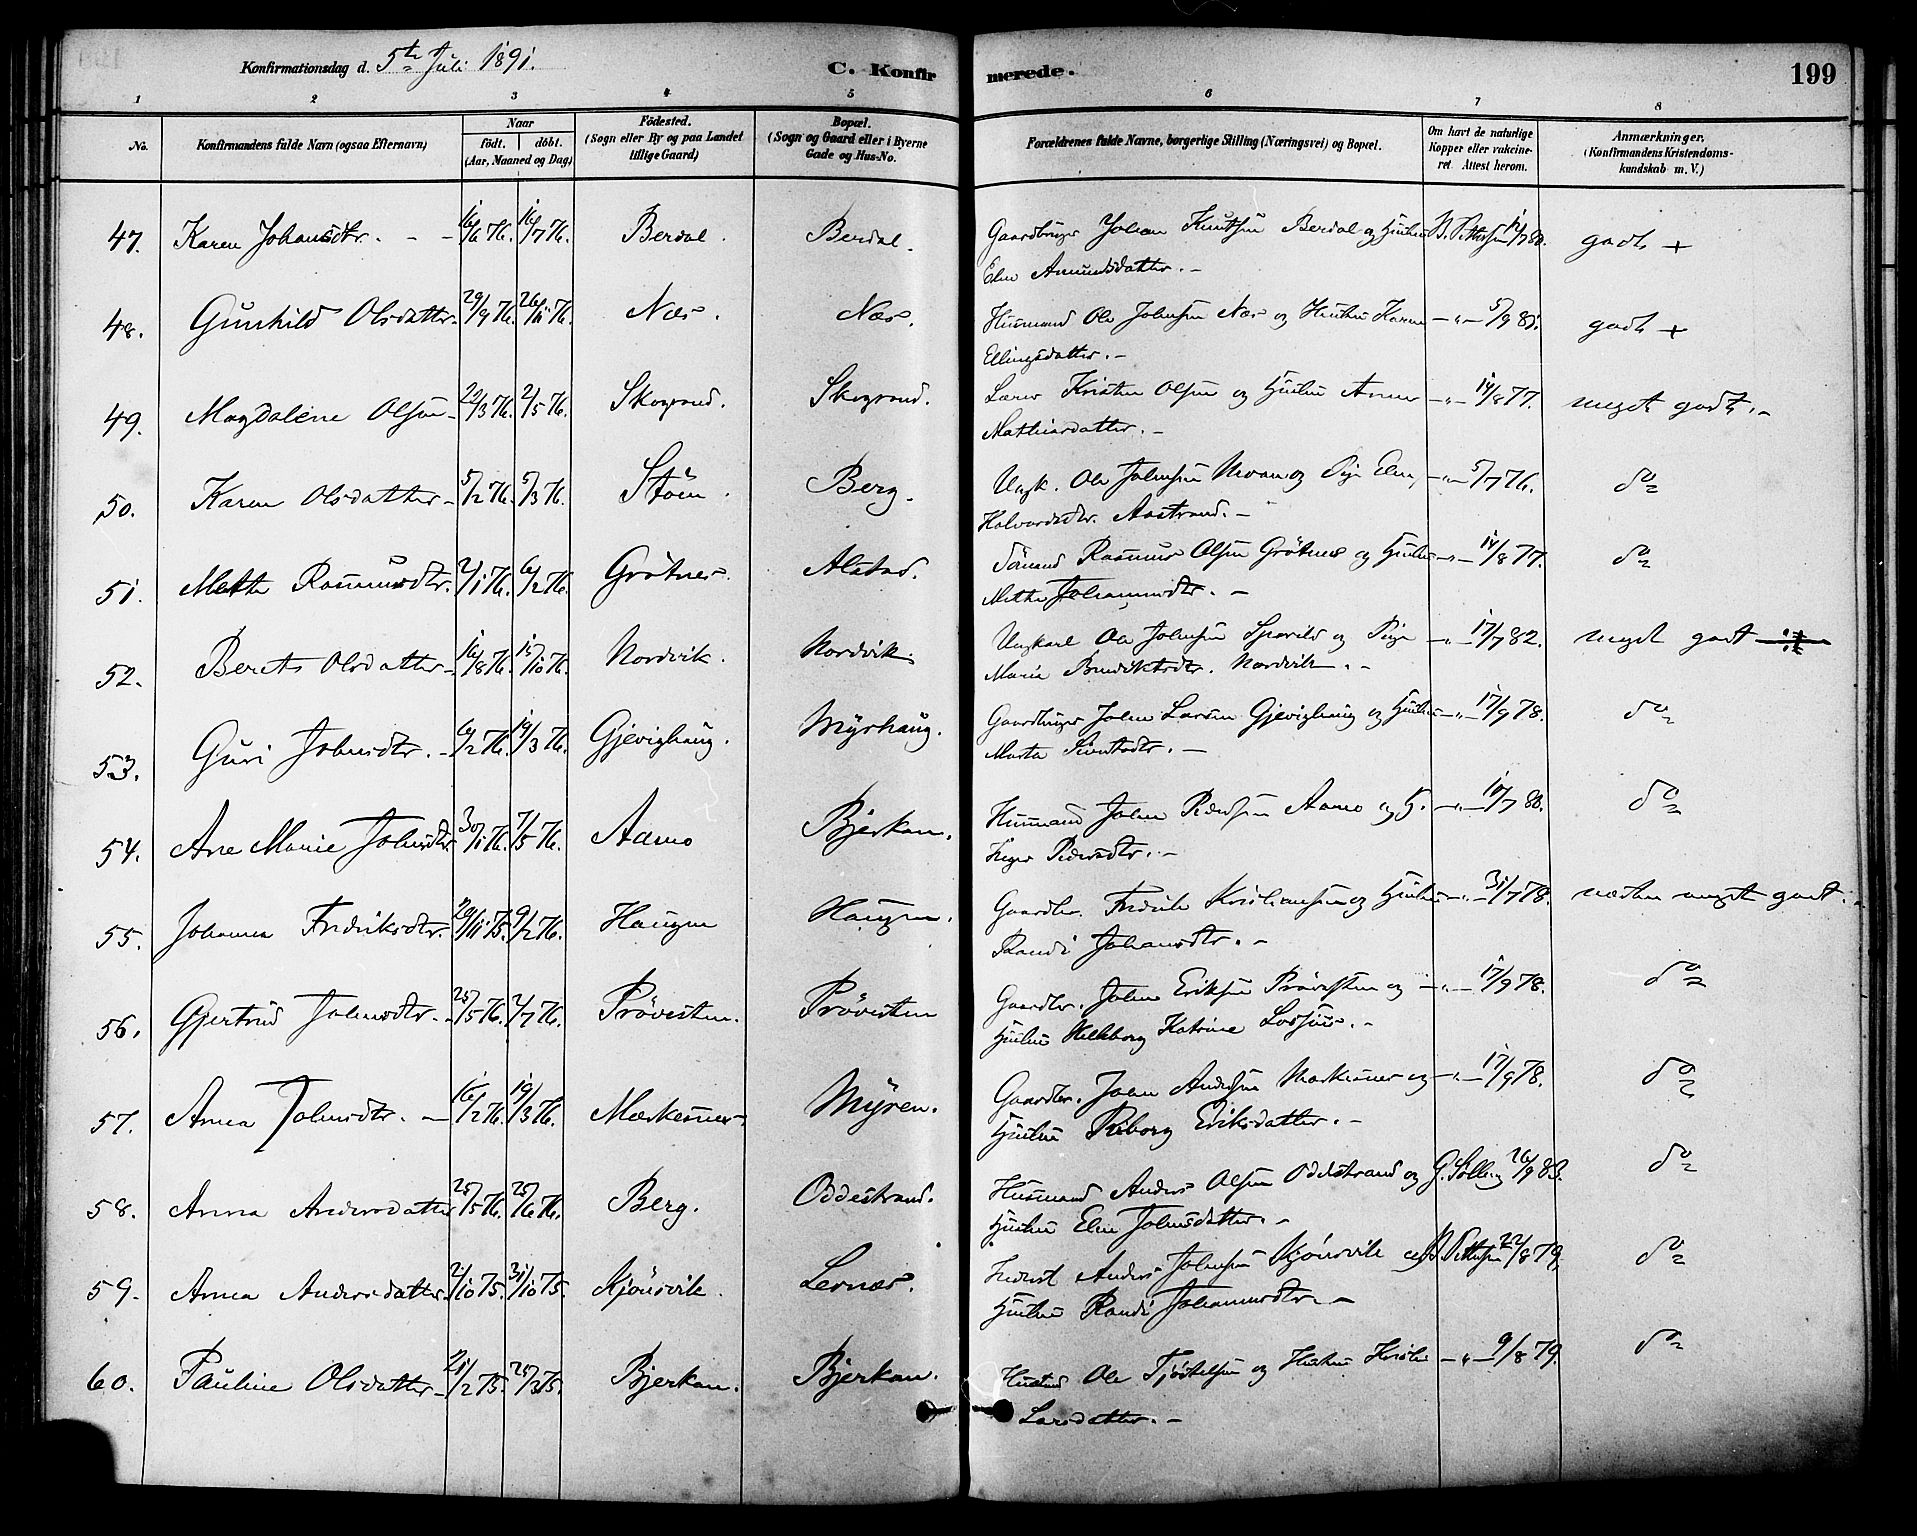 Konfirmationsdag d. 5te Juli 1891.
C. Konfirmerede.
199
1 2 3 4 5 6 7 8
No. Konfirmandens fulde Navn (ogsaa Efternavn) Naar födt. döbt. (Aar, Maaned og Dag) Födested. (Sogn eller By og paa Landet tillige Gaard) Bopæl. (Sogn og Gaard eller i Byerne Gade og Hus-No. Forældrenes fulde Navne, borgerlige Stilling (Næringsvei) og Bopæl. Om havt de naturlige Kopper eller vakcineret. Attest herom. Anmærkninger. (Konfirmandens Kristendomskundskab m. V.)
47. Karen Johansdtr. 16/6 76. 16/7 76. Berdal. Berdal. Gaardbruger Johan Knutsen Berdal og Hustru B. Pettersen godt +
Elen Amundsdatter. -
48. Gunhild Olsdatter 29/9 76. 26/11 76. Næs. Næs. Husmand Ole Johnsen Næs og Hustru Karen -"- 5/9 81. godt +
Ellingsdatter. -
49. Magdalene Olsen 22/3 76. 2/5 76. Skogrand. Skogrand. Lærer Kristen Olsen og Hustru Anne -"- 14/8 77. meget godt. -
Mathiasdatter. -
50. Karen Olsdatter 5/2 76. 5/3 76. Stöen. Berg. Ungk. Ole Johnsen og Pige Elen -"- 5/7 76. do
Halvorsdtr. Aastrand. -
51. Mette Rasmusdtr. 2/1 76. 6/2 76. Grötnes. Alstad. Rasmus Olsen Grötnes og Hustru -"- 14/8 77. do
Mette Johannesdtr. -
52. Berets Olsdatter 16/8 76. 15/10 76. Nordvik. Nordvik. Ungkarl Ole Johnsen og Pige -"- 17/7 82. meget godt
Maria Bendiktsdtr. Nordvik. -
53. Guri Johnsdtr. 6/2 76. 19/3 76. Gjevighaug. Myrhaug. Gaardbruger John Larsen Gjevighaug og Hustru -"- 17/9 78. do
Marta Sivertsdtr. -
54. Ane Marie Johnsdtr. 30/1 76. 7/5 76. Aamo Bjerkan. Husmand John Pedersen Aamo og H. -"- 10/7 80. do
Inger Pedersdtr. -
55. Johanna Fredriksdtr. 29/11 75. 9/2 76. Haugen Haugen. Gaardbr. Fredrik Kristiansen og Hustru -"- 31/7 78. næsten meget godt.
Randi Johansdtr. -
56. Gjertrud Johnsdtr. 25/5 76. 2/7 76. Prövesten. Prövesten Gaardbr. John Eriksen Prövesten og -"- 17/9 78. do
Hustru Katrine -
57. Anna Johnsdtr. 16/2 76. 19/3 76. Mærkesnes Myren. Gaardbr. John Andersen Mærkesnes og -"- 17/9 78. do
Hustru Eriksdatter. -
58. Anna Andersdatter 25/5 76. 25/6 76. Berg. Oddestrand. Husmand Anders Olsen Oddestrand og G. Sölling 26/9 83. do
Hustru Elen Johnsdatter. -
59. Anna Andersdatter 2/10 75. 31/10 75. Kjönsvik. Lernæs. Inderst Anders Johnsen Kjönsvik og B. Pettersen 22/8 79. do
Hustru Randi Johannesdtr. -
60. Pauline Olsdatter 21/2 75. 25/3 75. Bjerkan. Bjerkan. Husmd Ole og Hustru -"- 9/8 79. do
Larsdatter. -